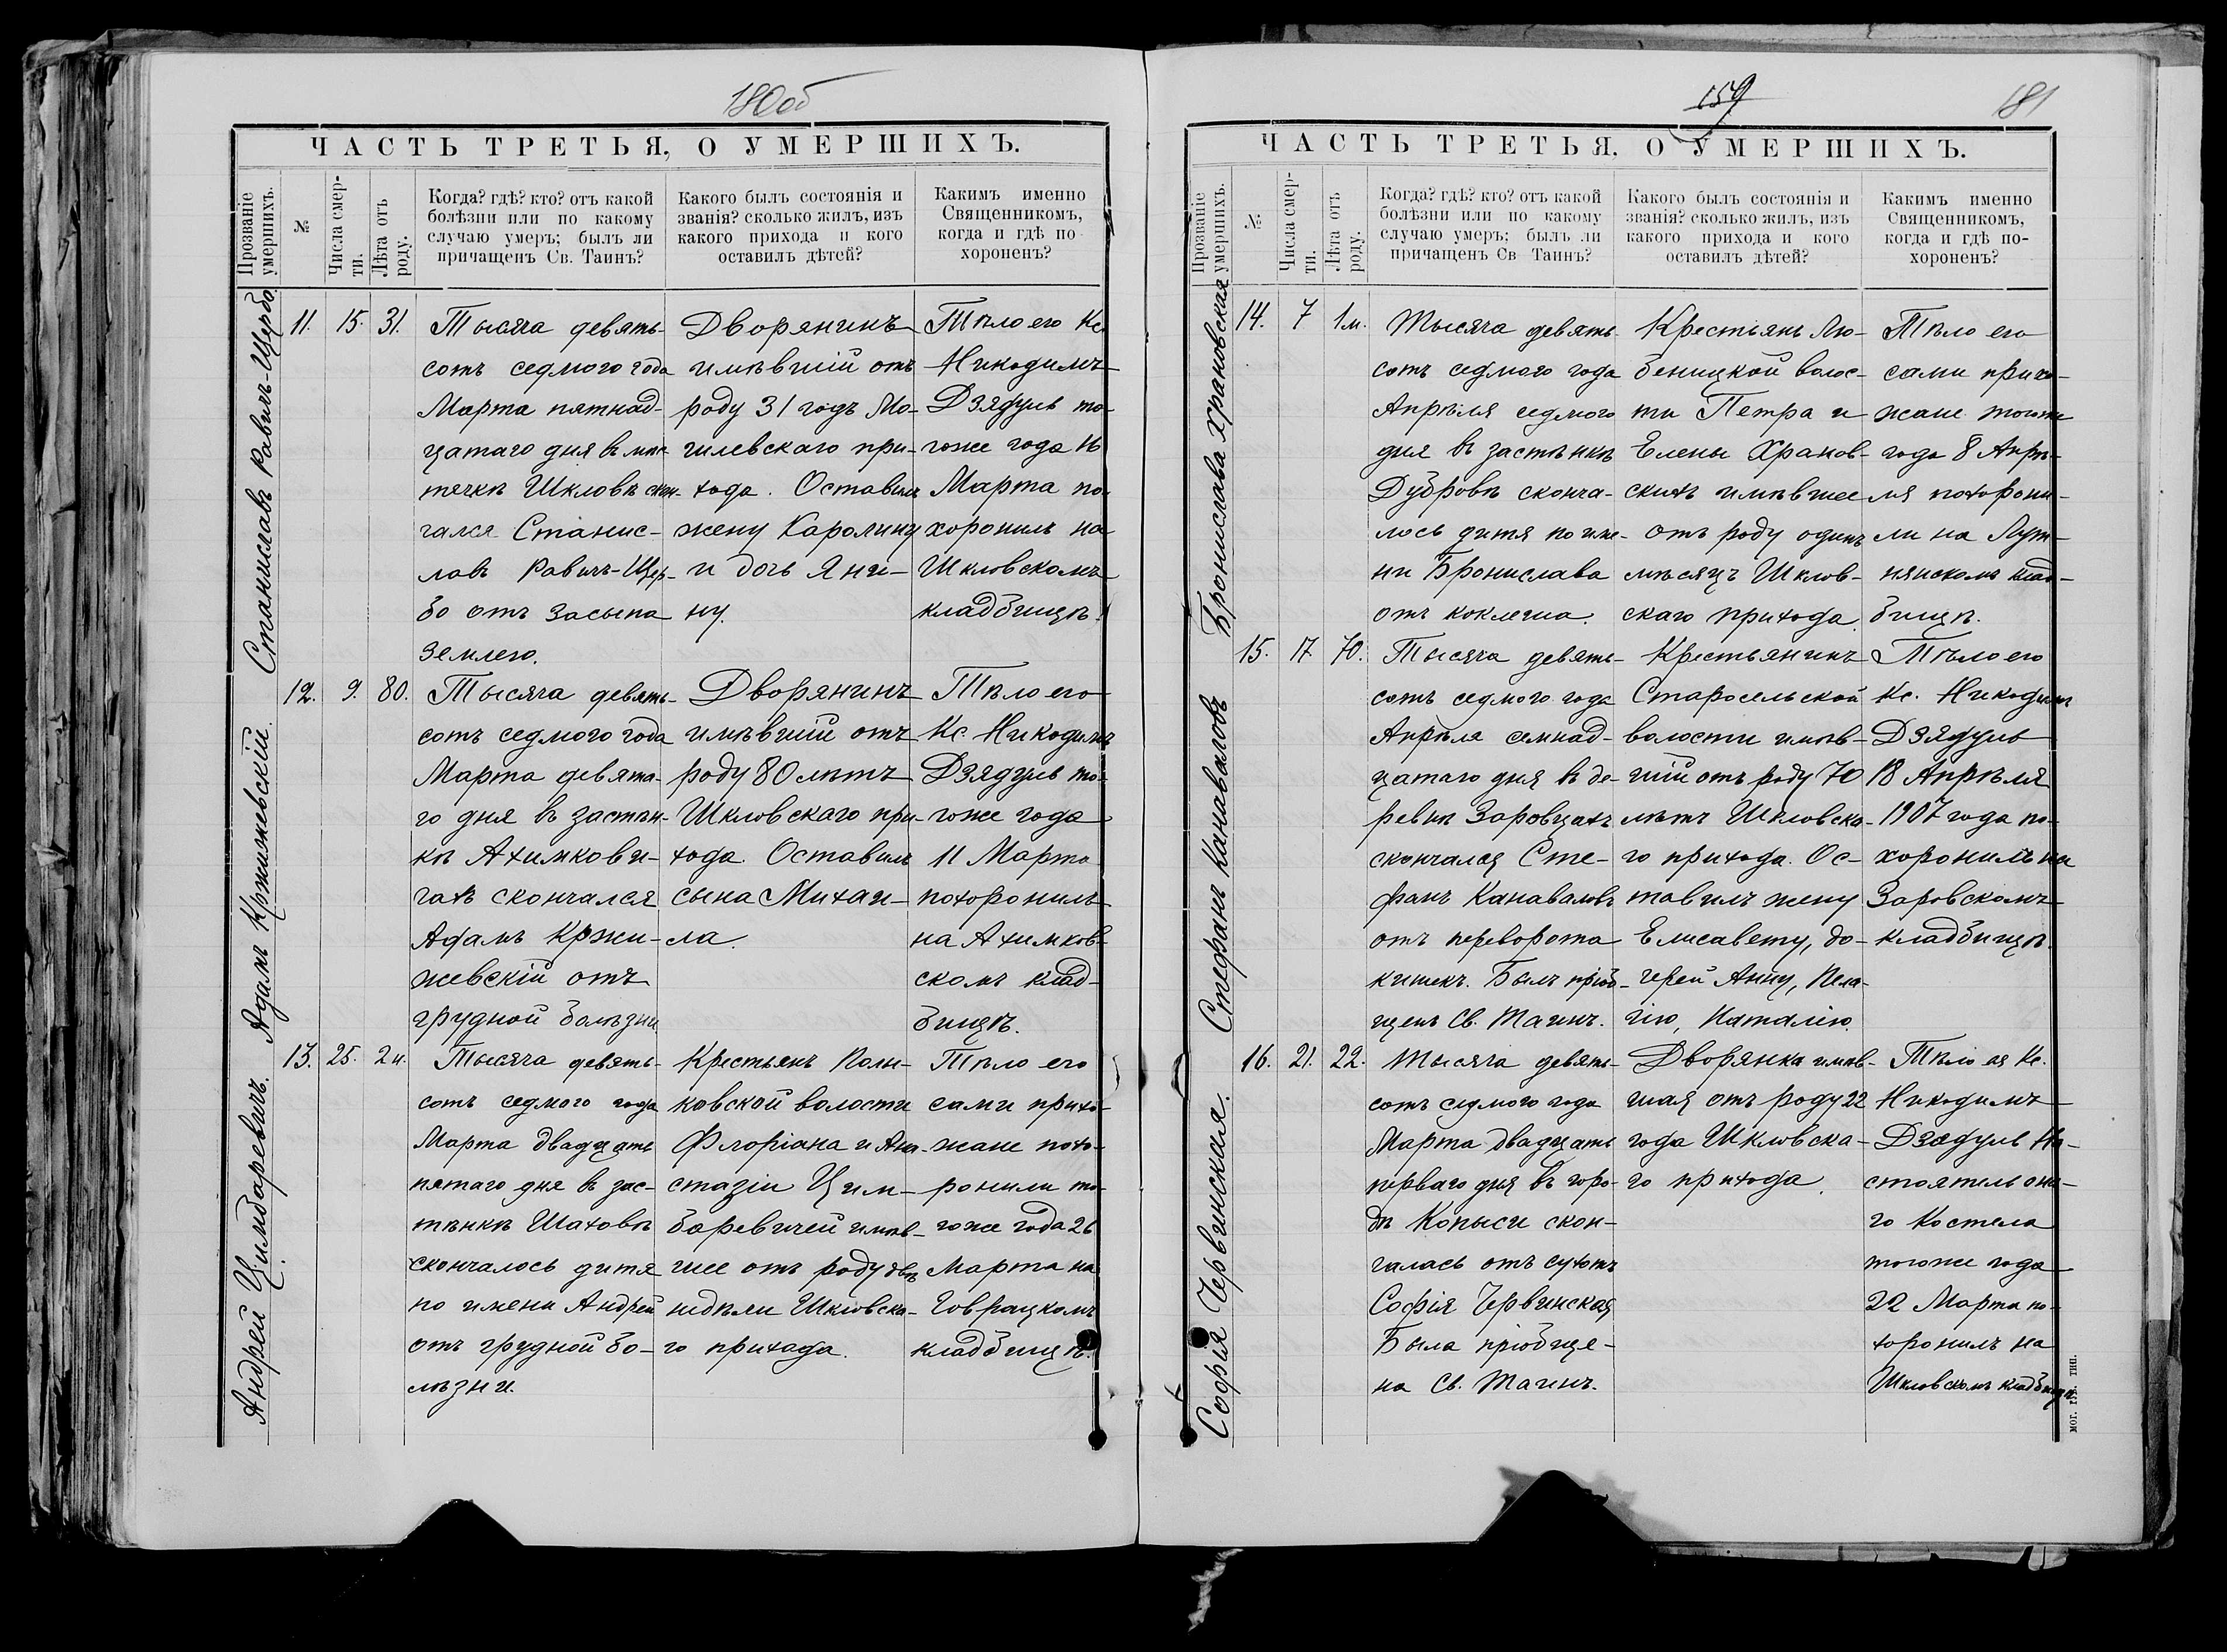 180об
ЧАСТЬ ТРЕТЬЯ, О УМЕРШИХЪ.
Прозваніе умершихъ.
№
Числа смерти.
Лѣта отъ роду.
Когда? гдѣ? кто? отъ какой
болѣзни или по какому
случаю умеръ; былъ ли
причащенъ Св. Таинъ?
Какого былъ состоянія и
званія? сколько жилъ, изъ
какого прихода и кого
оставилъ дѣтей?
Какимъ именно
Священникомъ,
когда и гдѣ по
хороненъ?
Станиславъ Равичъ-Щербо.
11. 15. 31.
Тысяча девять-
сотъ седмого года
Марта пятнад-
цатаго дня въ мѣс
течкѣ Шкловѣ скон-
чался Станис-
лавъ Равичъ-Щер-
бо отъ засыпа
землею.
Дворянинъ
имѣвшій отъ
роду 31 годъ Мо-
гилевскаго при-
хода. Оставилъ
жену Каролину
и дочь Яни-
ну.
Тѣло его Кс
Никодимъ
Дзядуль то-
гоже года 16
Марта по-
хоронилъ на
Шкловскомъ
кладбищѣ.
Адамъ Кржижевскій.
12. 9. 80.
Тысяча девять-
сотъ седмого года
Марта девята-
го дня въ застѣн-
кѣ Ахимкови-
чахъ скончался
Адамъ Кржи-
жевскій отъ
грудной болѣзни
Дворянинъ
имѣвшій отъ
роду 80 лѣтъ
Шкловскаго при-
хода. Оставилъ
сына Михаи-
ла.
Тѣло его
Кс. Никодимъ
Дзядуль то-
гоже года
11 Марта
похоронилъ
на Ахимков-
скомъ клад-
бищѣ.
Андрей Цимборевичъ.
13. 25. 2н.
Тысяча девять-
сотъ седмого года
Марта двадцать
пятаго дня въ зас-
тѣнкѣ Шаховѣ
скончалось дитя
по имени Андрей
отъ грудной бо-
лѣзни.
Крестьянъ Полы-
ковской волости
Флоріана и Ана-
стазіи Цим-
боревичей имѣв-
шее отъ роду двѣ
недѣли Шкловска-
го прихода.
Тѣло его
сами прихо-
жане похо-
ронили то-
гоже года 26
Марта на
Говрацкомъ
кладбищѣ.
159
181
ЧАСТЬ ТРЕТЬЯ, О УМЕРШИХЪ.
Прозваніе умершихъ.
№
Числа смерти.
Лѣта отъ роду.
Когда? гдѣ? кто? отъ какой
болѣзни или по какому
случаю умеръ; былъ ли
причащенъ Св Таинъ?
Какого былъ состоянія и
званія? сколько жилъ, изъ
какого прихода и кого
оставилъ дѣтей?
Какимъ именно
Священникомъ,
когда и гдѣ по-
хороненъ?
Бронислава Храновская
14. 7 1м.
Тысяча девять-
сотъ седмого года
Апрѣля седмого
дня въ застѣнкѣ
Дубровѣ сконча-
лось дитя по име-
ни Бронислава
отъ коклюша.
Крестьянъ Лю-
беницкой волос-
ти Петра и
Елены Хранов-
скихъ имѣвшее
отъ роду одинъ
мѣсяцъ Шклов-
скаго прихода.
Тѣло его
сами прихо-
жане тогоже
года 8 Апрѣ-
ля похорони-
ли на Лут-
нянскомъ клад-
бищѣ.
Стефанъ Канаваловъ
15. 17 70.
Тысяча девять-
сотъ седмого года
Апрѣля семнад-
цатаго дня въ де-
ревнѣ Заровцахъ
скончался Сте-
фанъ Канаваловъ
отъ переворота
кишекъ. Былъ пріоб-
щенъ Св. Таинъ.
Крестьянинъ
Старосельской
волости имѣв-
шій отъ роду 70
лѣтъ Шкловска-
го прихода. Ос-
тавилъ жену
Елисавету, до-
черей Анну, Пела-
гію, Наталію.
Тѣло его
Кс. Никодимъ
Дзядуль
18 Апрѣля
1907 года по-
хоронилъ на
Заровскомъ
кладбищѣ.
Софія Червинская.
16. 21. 22.
Тысяча девять-
сотъ седмого года
Марта двадцать
перваго дня въ горо-
дѣ Копыси скон-
чалась отъ сухотъ
Софія Червинская
Была пріобще-
на Св. Таинъ.
Дворянка имѣв-
шая отъ роду 22
года Шкловска-
го прихода.
Тѣло ея Кс.
Никодимъ
Дзядуль На-
стоятель она-
го Костела
тогоже года
22 Марта по-
хоронилъ на
Шкловскомъ кладбищѣ.
мог. губ. тип.